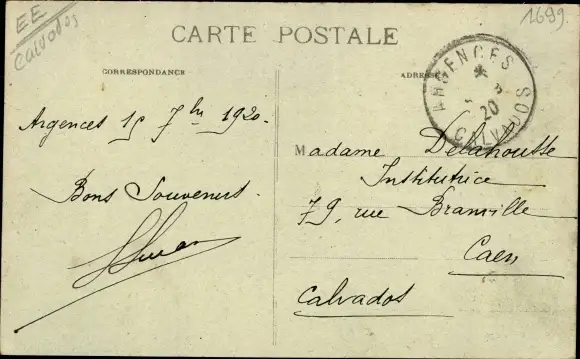 EE
Calvados
1699.
CARTE POSTALE
CORRESPONDANCE
ADRESSE
ARGENCES
20
CALVADOS
Argences 15 7bre 1920.
Bons Souvenirs.
Madame Delahousse
Institutrice
79, rue Branville
Caen
Calvados